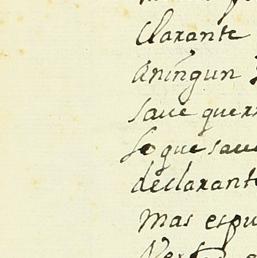 Clarante
Aningun
save quer
Lo que save
declarant
mas espu